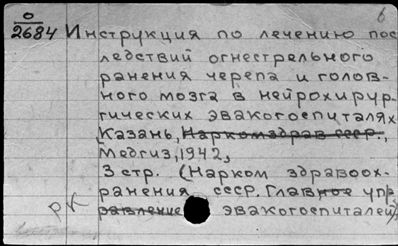 О
2684 Инструкция по лечению пос
ледствий огнестрельного
ранения черепа и голов-
ного мозга в нейрохирур-
гических эвакогоспиталях
Казань, Наркомздрав СССР.,
Медгиз, 1942,
3 стр. (Нарком здравоох-
ранения СССР. Главное упр
равление эвакогоспиталей)
РК
б